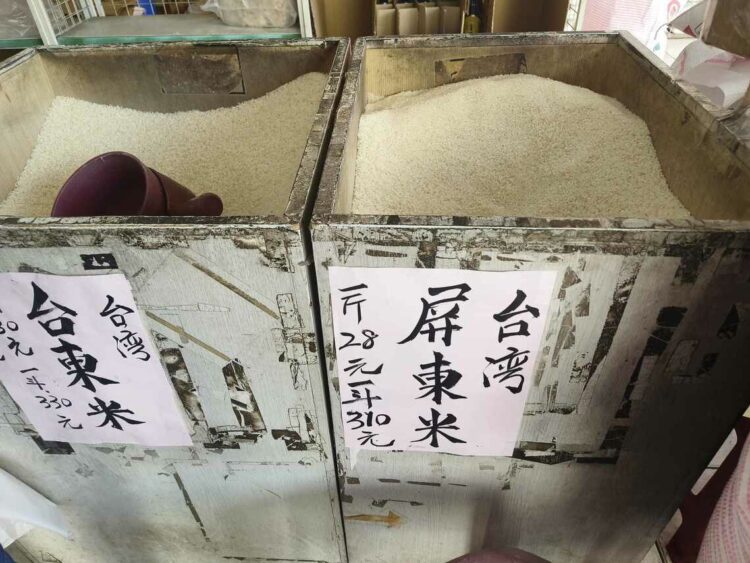 台湾
台東米
30元
一斗330元
台湾
屏東米
一斤28元
一斗310元